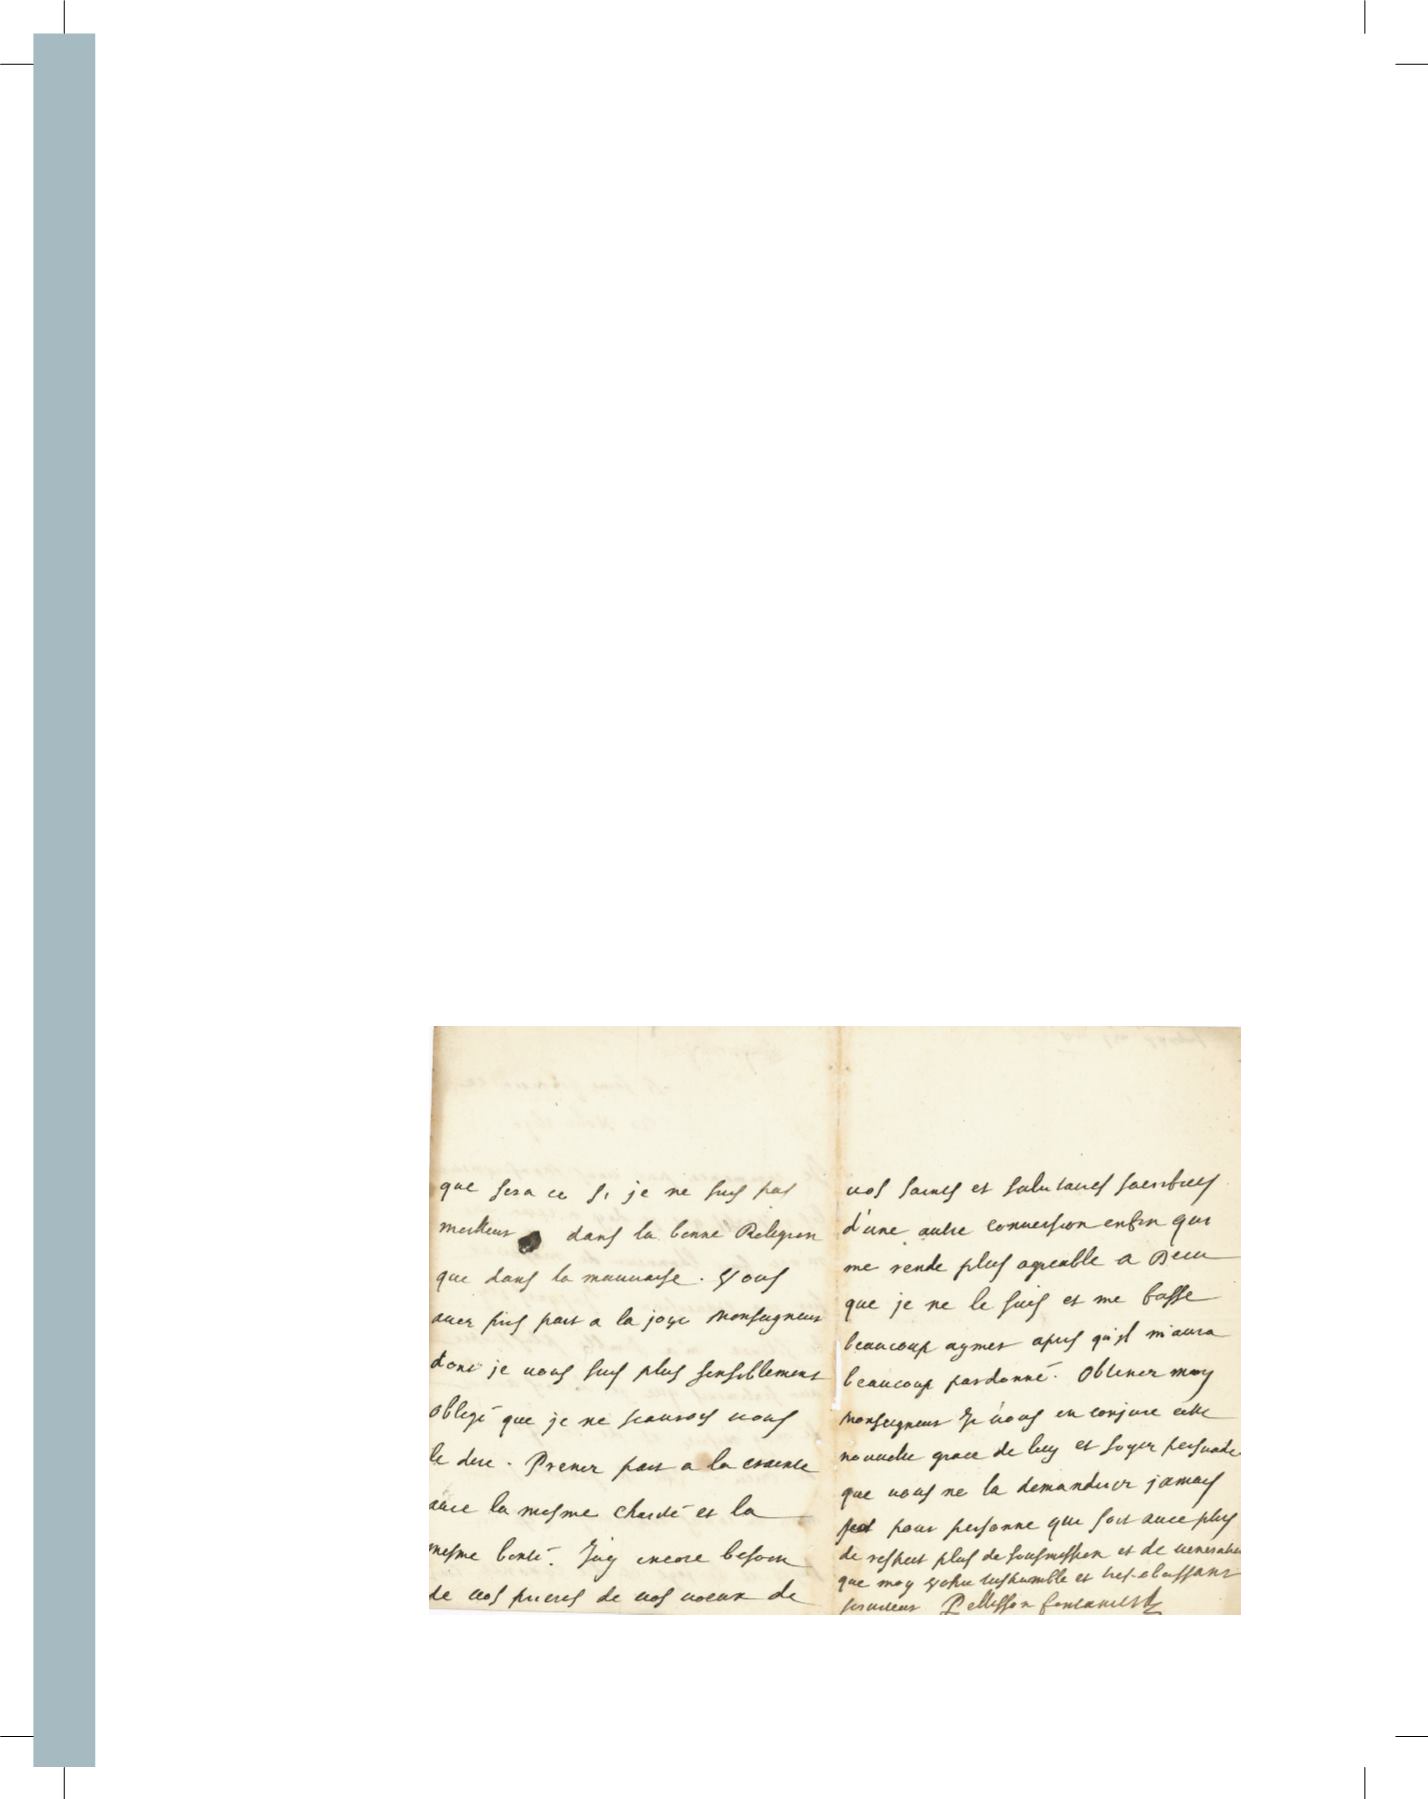 que sera ce si je ne suis pas
meilleur dans la bonne Religion
que dans la mauuaise. Vous
auez pris part a la joye Monseigneur
dont je vous suis plus sensiblement
obligé que je ne scaurois vous
le dire. Prenez part a la crainte
auec la mesme charité et la
mesme bonté. J'ay encore besoin
de vos prieres de vos voeux de
vos saints et salutaires sacrifices
d'une autre conuersion enfin qui
me rende plus agreable a Dieu
que je ne le suis et me fasse
beaucoup aymer apres qu'il m'aura
beaucoup pardonné. Obtenez moy
Monseigneur Je vous en conjure cette
nouuelle grace de luy et soyez persuadé
que vous ne la demanderez jamais
pour personne qui soit auec plus
de respect plus de sousmission et de veneration
que moy Vostre treshumble et tres-obeissant
seruiteur Pellisson Fontanier